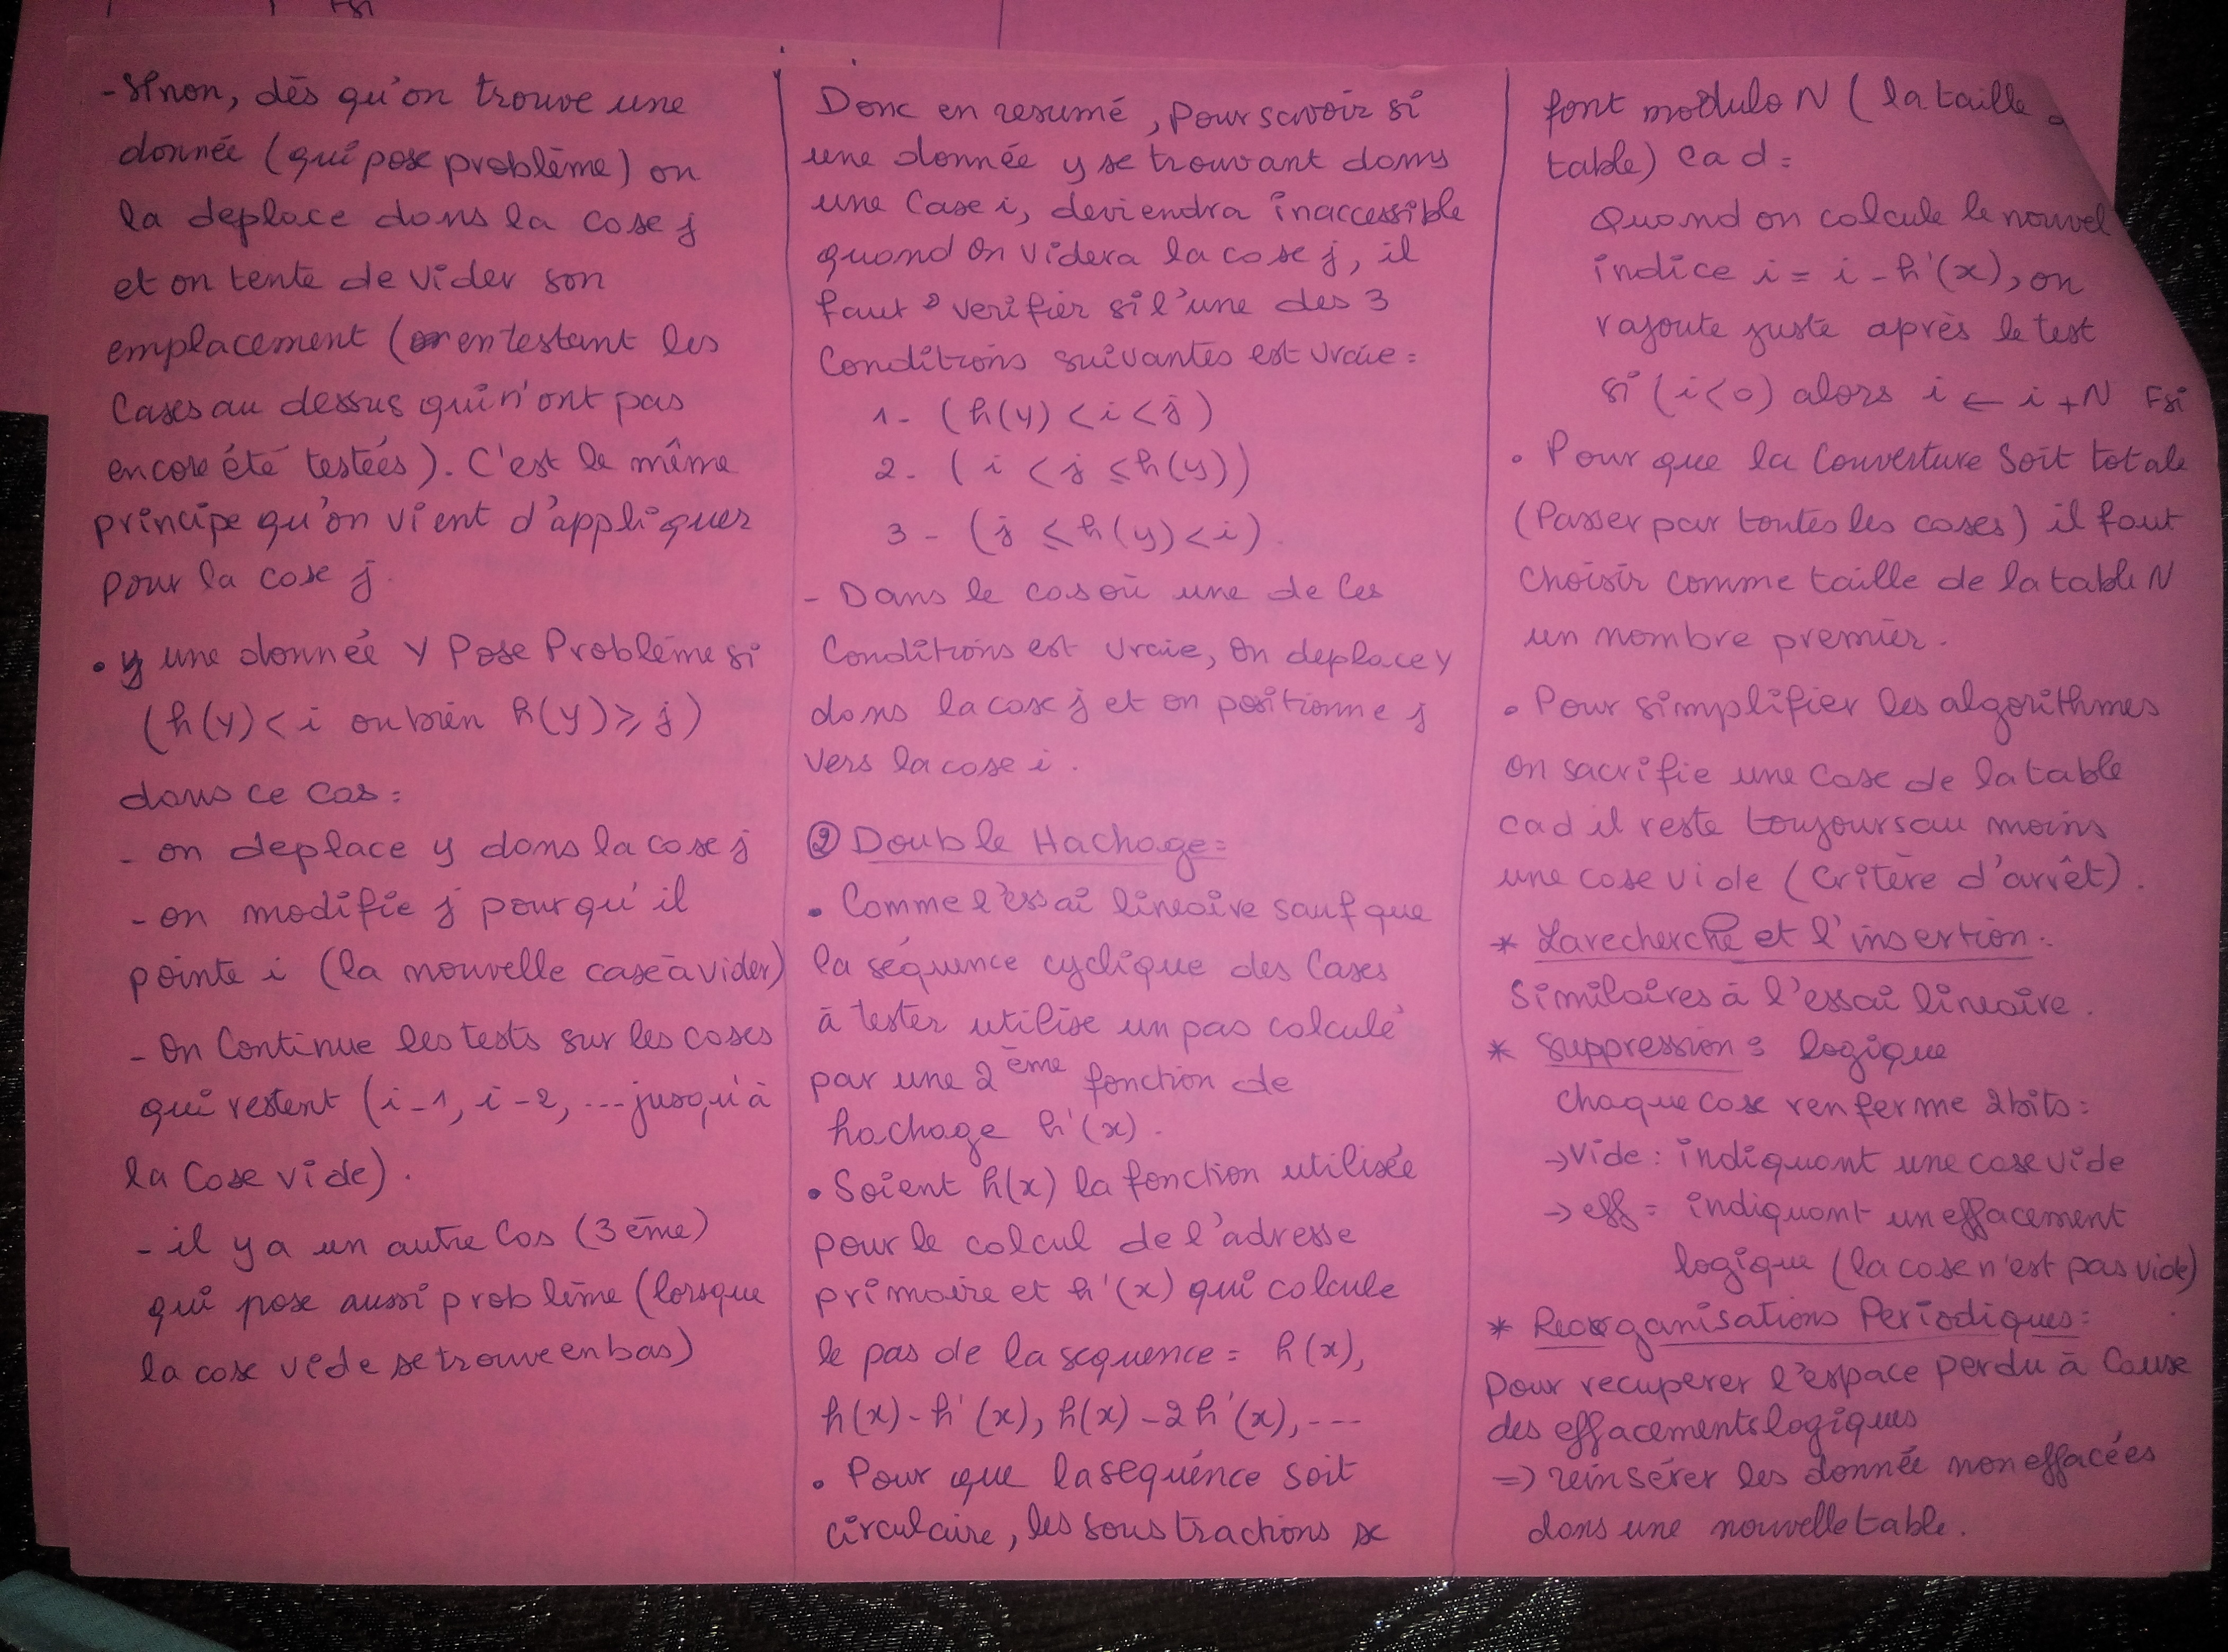 Fsi
- Sinon, dès qu'on trouve une
donnée (qui pose problème) on
la deplace dans la case j
et on tente de vider son
emplacement (en testant les
Cases au dessus qui n'ont pas
encore été testées). C'est le même
principe qu'on vient d'appliquer
pour la case j.
• y une donnée y Pose Problème si
(h(y) < i ou bien h(y) ⩾ j)
dans ce cas :
- on deplace y dans la case j
- on modifie j pour qu'il
pointe i (la nouvelle case à vider)
- On Continue les tests sur les cases
qui restent (i-1, i-2, ... jusqu'à
la Case vide).
- il y a un autre Cas (3 ème)
qui pose aussi problème (lorsque
la case vide se trouve en bas)
Donc en resumé, pour savoir si
une donnée y se trouvant dans
une Case i, deviendra inaccessible
quand on videra la case j, il
faut verifier si l'une des 3
Conditions suivantes est vraie :
1- (h(y) < i < j)
2- (i < j ⩽ h(y))
3- (j ⩽ h(y) < i).
- Dans le cas où une de Ces
Conditions est vraie, on deplace y
dans la case j et on positionne j
vers la case i.
② Double Hachage :
• Comme l'essai lineaire sauf que
la séquence cyclique des Cases
à tester utilise un pas calculé
par une 2ème fonction de
hachage h'(x).
• Soient h(x) la fonction utilisée
pour le calcul de l'adresse
primaire et h'(x) qui calcule
le pas de la sequence : h(x),
h(x)-h'(x), h(x)-2h'(x), ...
• Pour que la sequénce soit
circulaire, les soustractions se
font modulo N (la taille
table) cad :
Quand on calcule le nouvel
indice i = i - h'(x), on
rajoute juste après le test
si (i<0) alors i ← i+N Fsi
• Pour que la Couverture Soit totale
(Passer par toutes les cases) il faut
choisir comme taille de la table N
un nombre premier.
• Pour simplifier les algorithmes
on sacrifie une case de la table
cad il reste toujours au moins
une case vide (Critère d'arrêt).
* La recherche et l'insertion :
Similaires à l'essai lineaire.
* Suppression : logique
chaque case renferme 2 bits :
→ Vide : indiquant une case vide
→ eff : indiquant un effacement
logique (la case n'est pas vide)
* Reorganisations Periodiques :
Pour recuperer l'espace perdu à Cause
des effacements logiques
=> réinsérer les donnée non effacées
dans une nouvelle table.